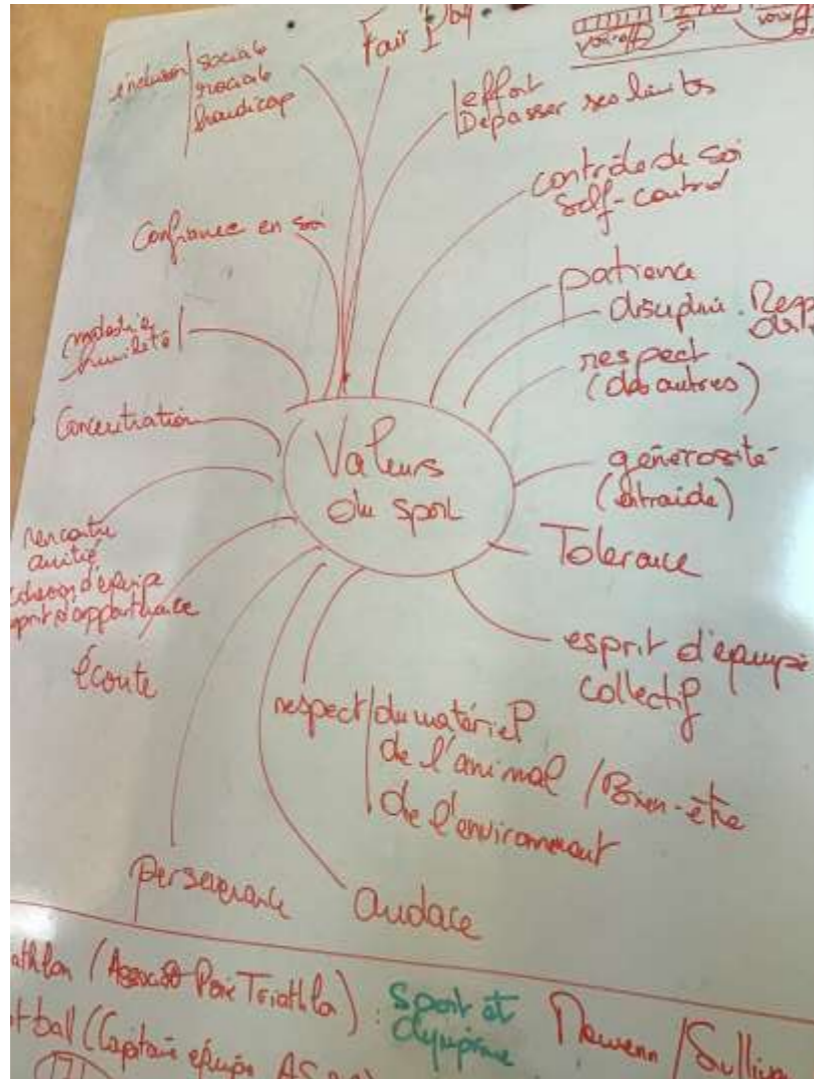 Fair Play
inclusion
sociale
raciale
handicap
effort
Dépasser ses limites
contrôle de soi
self-control
Confiance en soi
patience
discipline. Resp
modestie
humilité
respect
(des autres)
Concentration
Valeurs
du sport
générosité
(entraide)
Tolerance
rencontre
amitié
cohésion d'équipe
esprit d'appartenance
Écoute
esprit d'équipe
collectif
respect du matériel
de l'animal / Bien-être
de l'environnement
perseverance
audace
athlon (Associat° Triathlon) : Sport et
olympisme
tball (Capitaine équipe AS